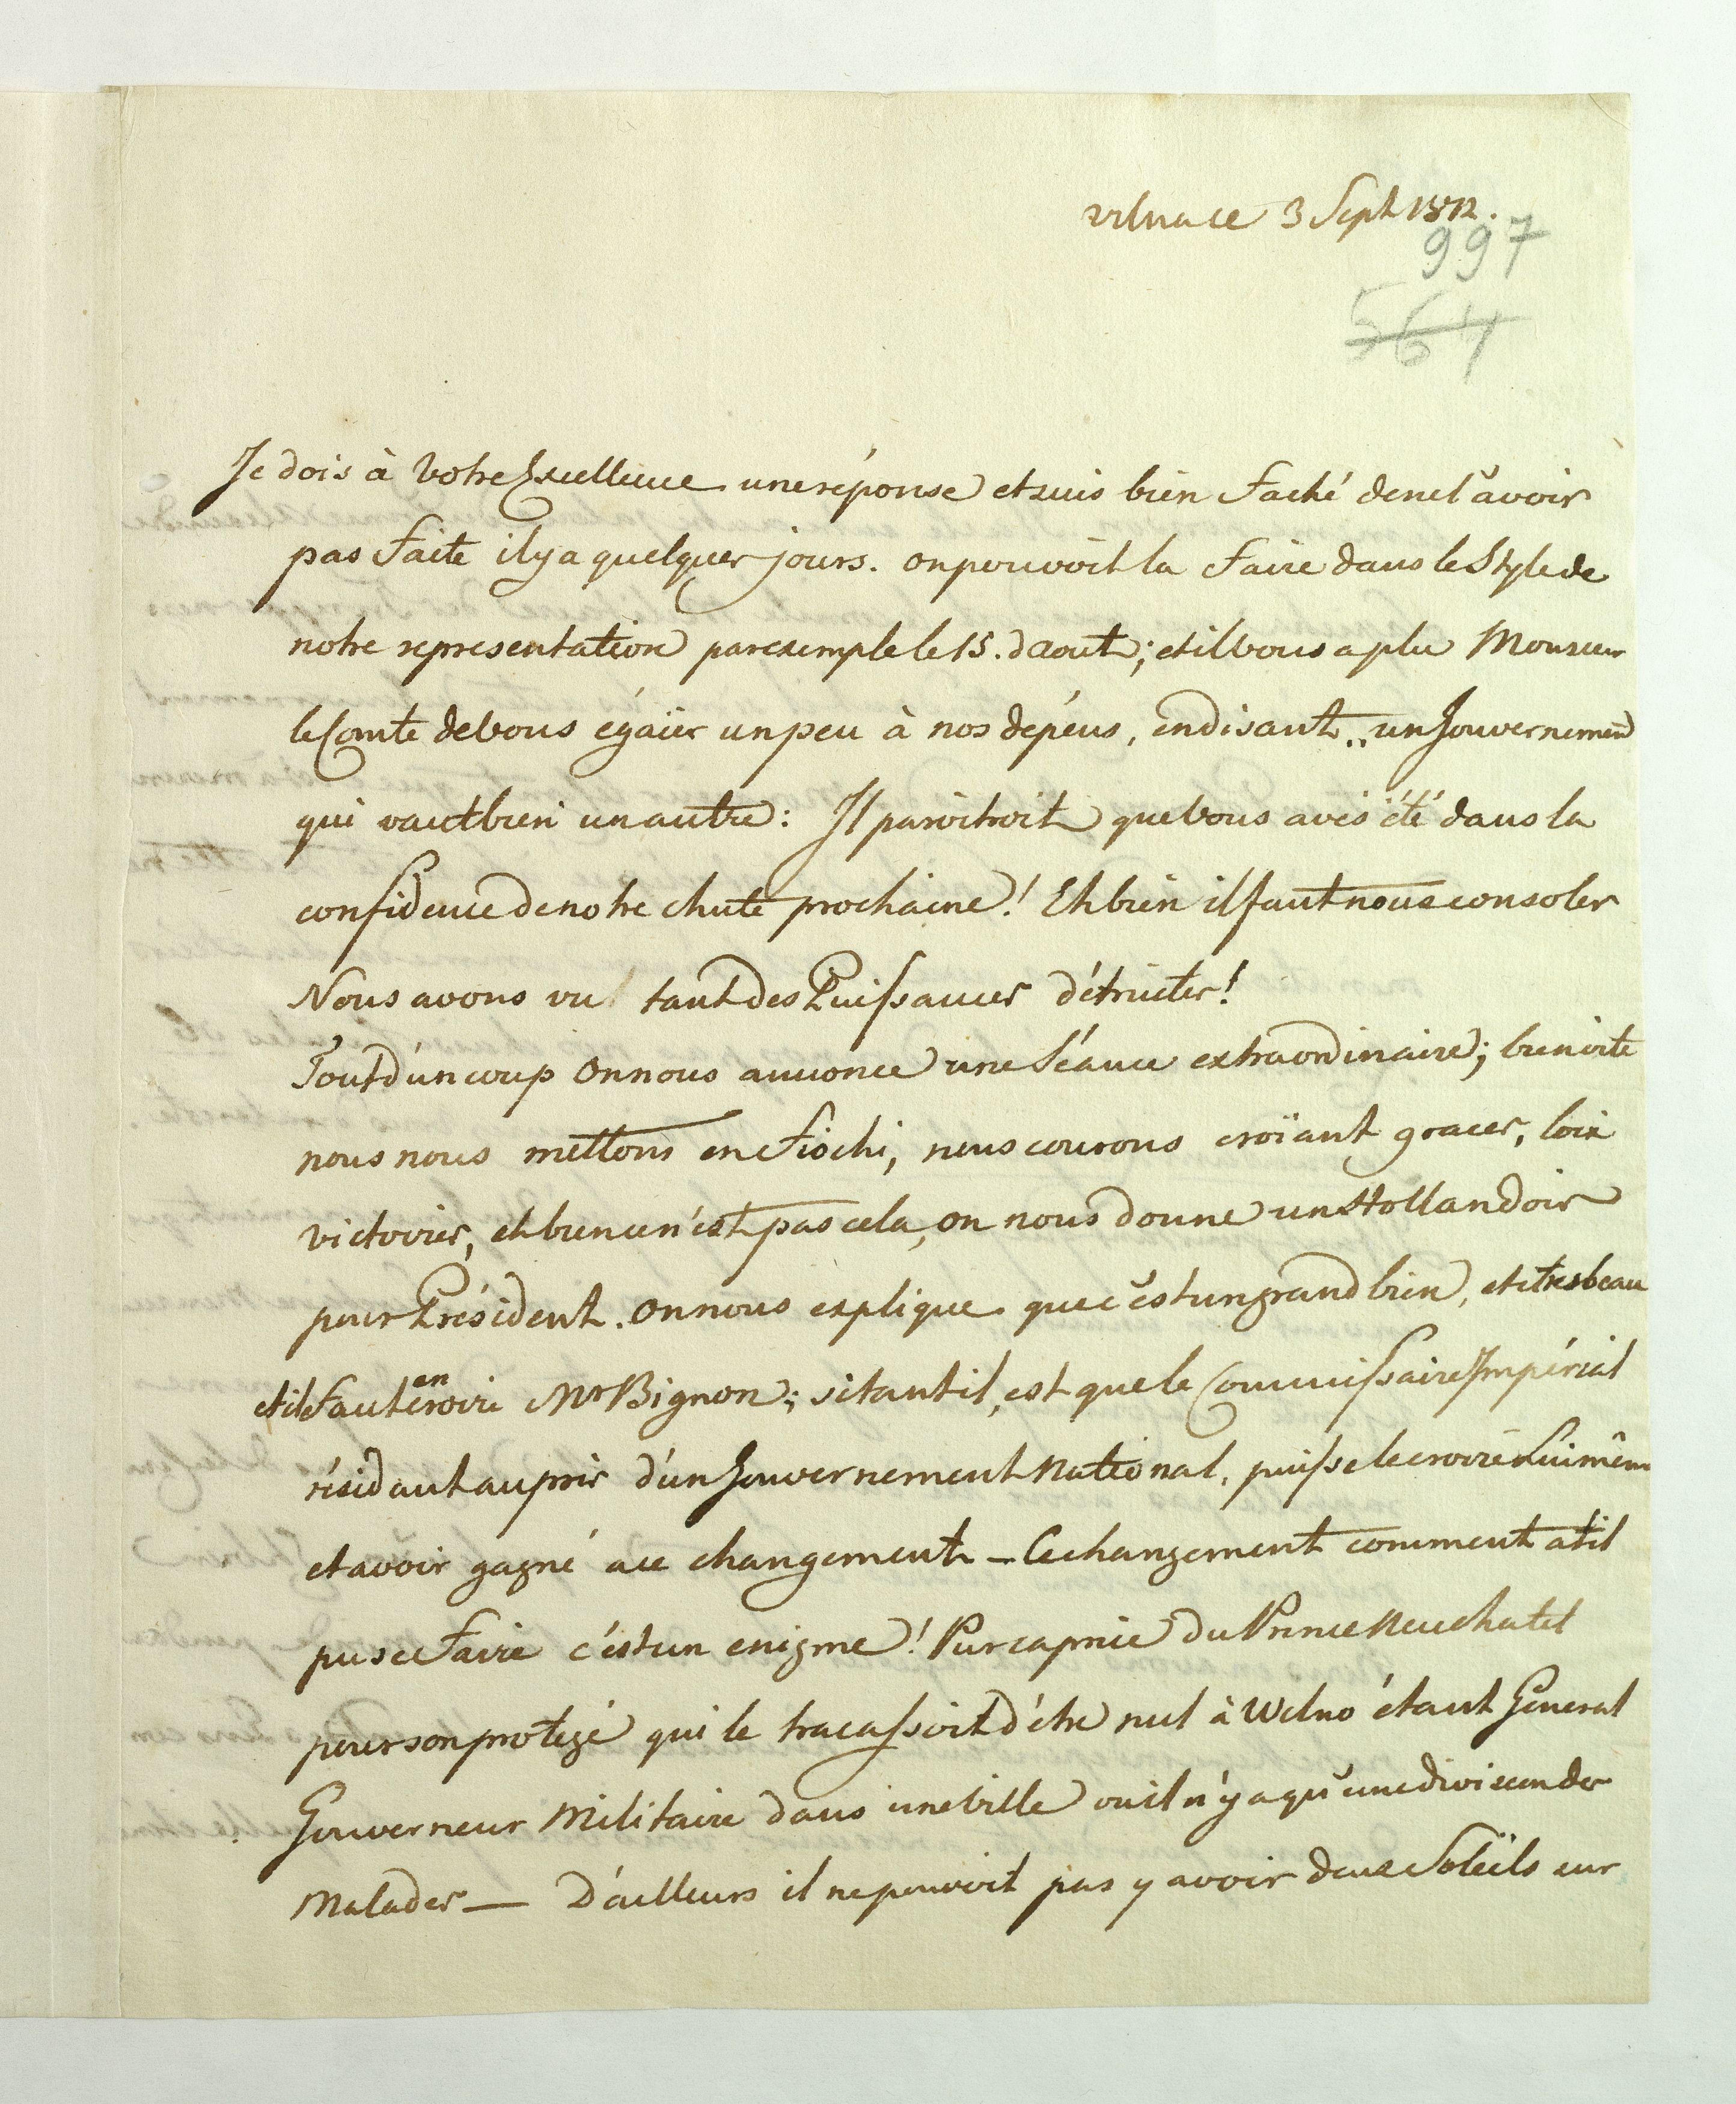 vilna ce 3 Sept 1812.
997
564
Je dois à Votre Excellence une réponse et suis bien faché de ne l'avoir
pas faite il y a quelques jours. on pouvoit la faire dans le Style de
notre representation par exemple le 15. d'aout; et il vous a plu Monsieur
le Comte de vous égaïer un peu à nos dépens, en disant „un Gouvernement
qui vaut bien un autre: Il paroitroit que vous avés été dans la
confidence de notre chute prochaine! Eh bien il faut nous consoler
Nous avons vu tant des Puissances détruites!
Tout d'un coup on nous annonce une Séance extraordinaire; bien vite
nous nous mettons en fiochi, nous courons croïant graces, loix
victoires, eh bien ce n'est pas cela, on nous donne un Hollandois
pour Président. on nous explique que c'est un grand bien, et très beau
et il faut en croire Mr Bignon; si tant il, est que le Commissaire Impérial
résidant auprès d'un Gouvernement National, puisse le croire Lui même
et avoir gagné a ce changement — Ce changement comment at il
pu se faire c'est un enigme! Pur caprice du Prince Neuchatel
pour son protegé qui le tracassoit d'étre nul à Wilno étant Géneral
Gouverneur Militaire dans une Ville ou il n'y a qu'une division des
Malades — D'ailleurs il ne pouvoit pas y avoir deux Soleils sur